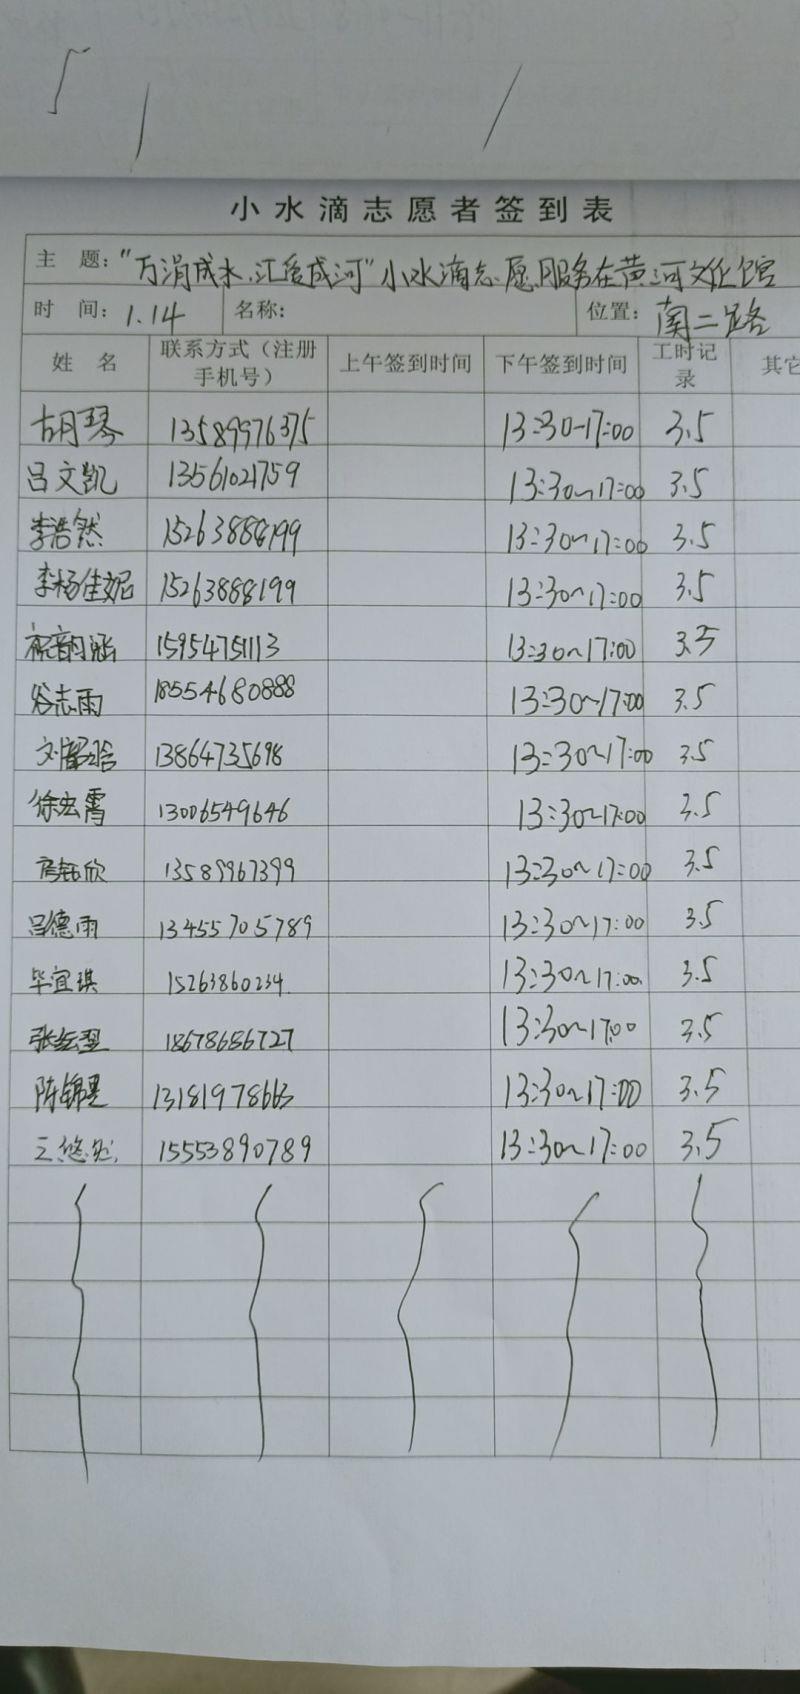 小水滴志愿者签到表
主 题：“万涓成水、汇爱成河”小水滴志愿服务在黄河文化馆
时 间：1.14 名称： 位置：南二路
姓 名 联系方式（注册手机号） 上午签到时间 下午签到时间 工时记录 其它
胡琴 13589976375 13:30-17:00 3.5
吕文凯 13561021759 13:30~17:00 3.5
李浩然 15263888199 13:30~17:00 3.5
李杨佳妮 15263888199 13:30~17:00 3.5
韵涵 15954751113 13:30~17:00 3.5
谷志雨 18554680888 13:30~17:00 3.5
刘 晗 13864735698 13:30~17:00 3.5
徐宏霄 13006549646 13:30~17:00 3.5
钰欣 13589967399 13:30~17:00 3.5
吕德雨 13455705789 13:30~17:00 3.5
毕宜琪 15263860234 13:30~17:00 3.5
张 18678686727 13:30~17:00 3.5
陈锦 13181978663 13:30~17:00 3.5
王悠然 15553890789 13:30~17:00 3.5